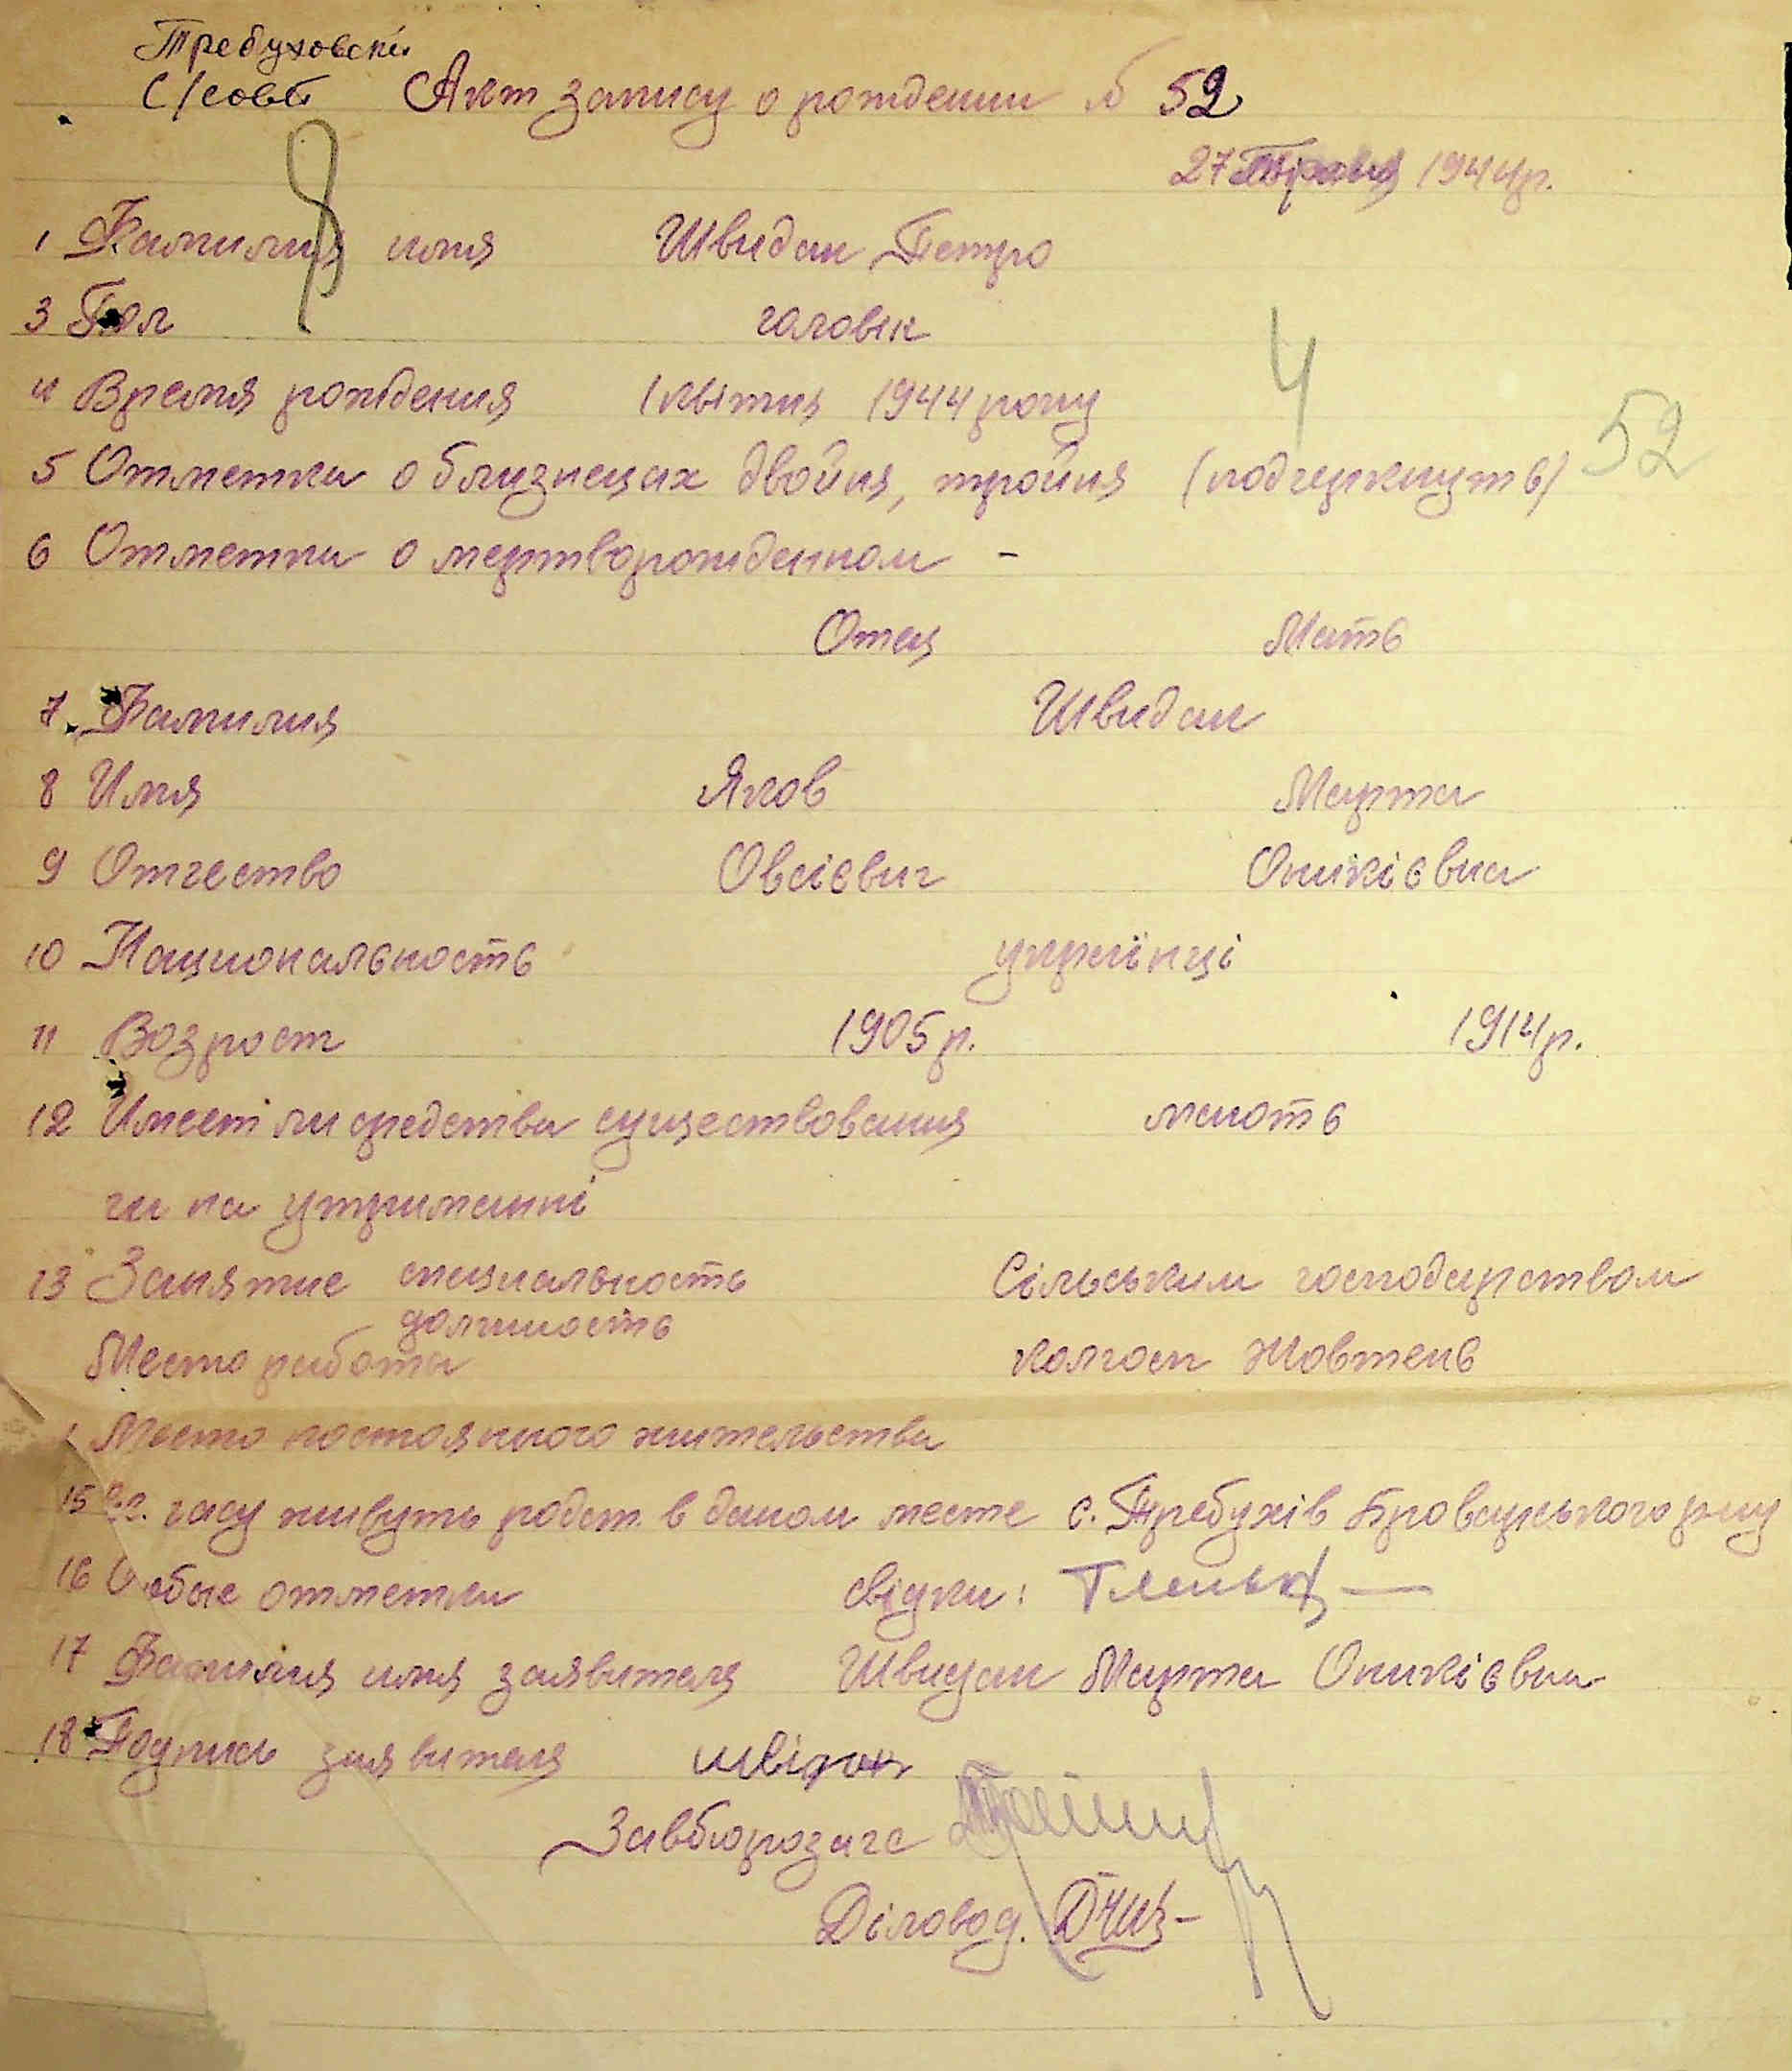 Требуховский
С/совет Акт запису о рождении № 52
27 Травня 1944 р.
1 Фамилия имя Швидан Петро
3 Пол чоловік
4 Время рождения 1 квітня 1944 року
4
52
5 Отметка о близнецах двойня, тройня (подчеркнуть)
6 Отметка о мертворожденном -
Отец Мать
7. Фамилия Швидан
8 Имя Яков Марта
9 Отчество Овсієвич Оникієвна
10 Национальность українці
11 Возрост 1905 р. 1914 р.
12 Имеет ли средства существования мають
чи на утриманні
13 Занятие специальность Сільським господарством
должность
Место работы колгосп Жовтень
Место постоянного жительства
15 часу живуть родит. в даном месте с. Требухів Броварського р-ну
16 Особые отметки свідки:
17 Фамилия имя заявителя Швидан Марта Оникієвна
18 Подпись заявителя швідан
Завбюрозагс
Діловод.